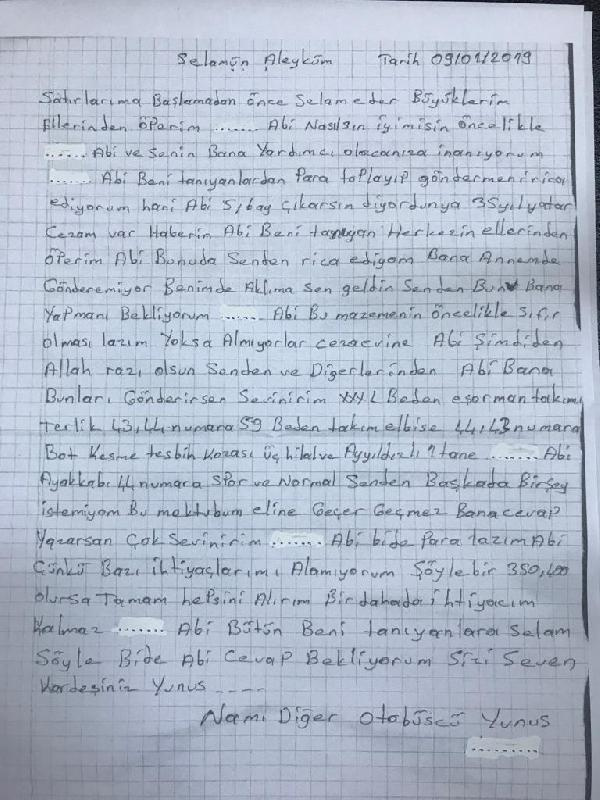 Selamün Aleyküm Tarih 09/01/2019
Satırlarıma Başlamadan önce Selam eder Büyüklerim
Ellerinden öperim ....... Abi Nasılsın iyimisin öncelikle
...... Abi ve Senin Bana Yardımcı olacanıza inanıyorum
...... Abi Beni tanıyanlardan Para toplayıp göndermeni rica
ediyorum hani Abi 5,6ay Çıkarsın diyordunya 35yıl yatar
Cezam var Haberin Abi Beni tanıyan Herkezin ellerinden
öperim Abi Bunuda Senden rica ediyom Bana Annemde
Gönderemiyor Benimde Aklıma Sen geldin Senden Bunu Bana
Yapmanı Bekliyorum ...... Abi Bu mazemenin öncelikle Sıfır
olması lazım Yoksa Almıyorlar cezaevine Abi Şimdiden
Allah razı olsun Senden ve Diğerlerinden Abi Bana
Bunları Gönderirsen Sevinirim XXXL Beden eşorman takımı
Terlik 43,44 numara 59 Beden takım elbise 44,43 numara
Bot Kesme tesbih Kozası üç hilal ve Ayyıldızlı 1 tane ....... Abi
Ayakkabı 44 numara Spor ve Normal Senden Başkada Birşey
istemiyom Bu mektubum eline Geçer Geçmez Bana cevap
Yazarsan Çok Sevinirim ....... Abi bide Para lazım Abi
Çünkü Bazı ihtiyaçlarımı Alamıyorum Şöyle bir 350,400
olursa Tamam hepsini Alırım Bir dahada ihtiyacım
kalmaz ....... Abi Bütün Beni tanıyanlara Selam
Söyle Bide Abi Cevap Bekliyorum Sizi Seven
Kardeşiniz Yunus ....
Namı Diğer Otobüscü Yunus
.........